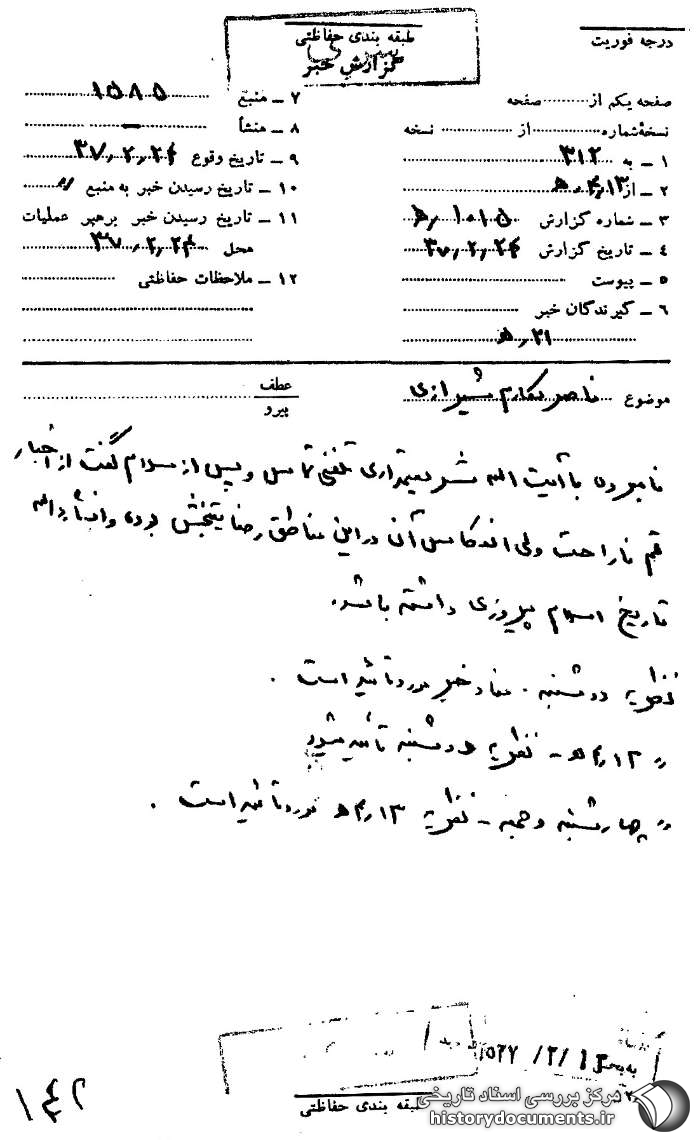 طبقه بندی حفاظتی
گزارش خبر
درجه فوریت
صفحه یکم از صفحه
نسخه شماره از نسخه
۱ – به ۳۱۲
۲ – از ۱۳ر۴ر ه
۳ – شماره گزارش
۴ – تاریخ گزارش ۳۷٫۲٫۲۴
۵ – پیوست
۶ – گیرندگان خبر
۲۱ر ه
۷ – منبع ۱۵۸۵
۸ – منشأ –
۹ – تاریخ وقوع ۳۷٫۲٫۲۴
۱۰ – تاریخ رسیدن خبر به منبع //
۱۱ – تاریخ رسیدن خبر برهبر عملیات
محل ۳۷٫۲٫۲۴
۱۲ – ملاحظات حفاظتی
موضوع ناصر مکارم شیرازی
عطف
پیرو
نامبرده با آیت اله شریعتمداری تلفنی تماس و پس از سلام گفت از اخبار
قم ناراحت ولی انعکاس آن در این مناطق رضایتبخش بوده و انشاءاله
تاریخ اسلام پیروزی داشته باشد.
نظریه دوشنبه . مفاد خبر مورد تأئید است .
// ۱۲ر۴ر ه – نظریه دوشنبه تأئید میشود
// چهارشنبه و جمعه – نظریه ۱۳ر۴ر ه مورد تائید است .
طبقه بندی حفاظتی
۱۴۲
مرکز بررسی اسناد تاریخی
historydocuments.ir